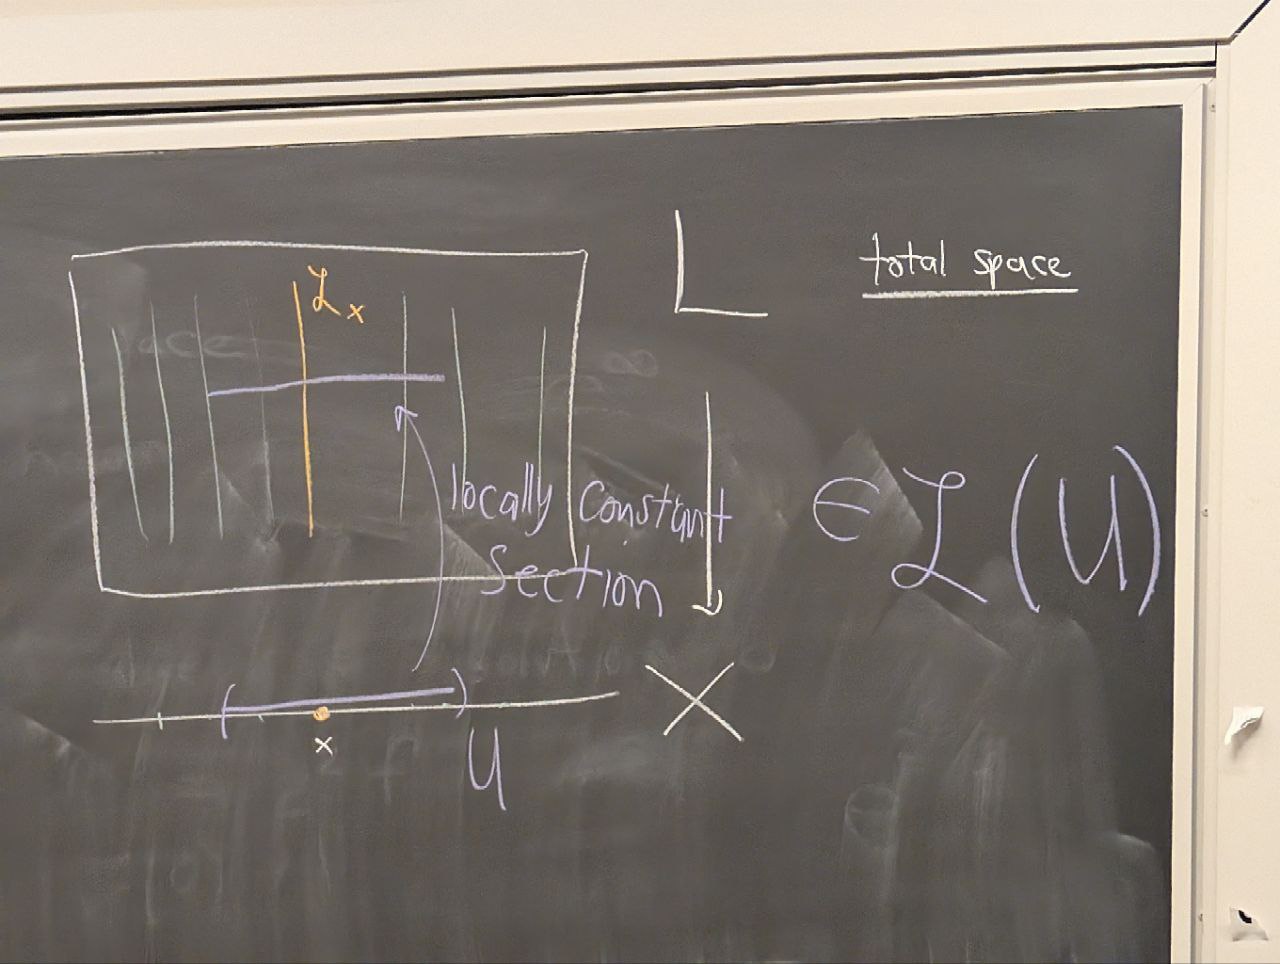 L total space
ℒₓ
locally constant
section
∈ ℒ(U)
X
x
U